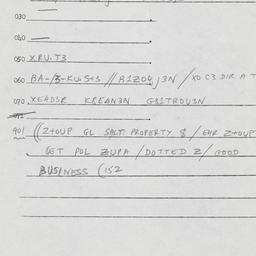 030
040
050 XRU.T3
060 BA-/3-KU.S+S // A1ZO4J3N / XO C3 DIR A T
070 XEAD3R KREAN3N GBITROU3N
901 ((Z+OUP GL SALT PROPERTY $ / EHR Z+OUP
GET POL ZUPA / DOTTED Z / GOOD
BUSINESS (152